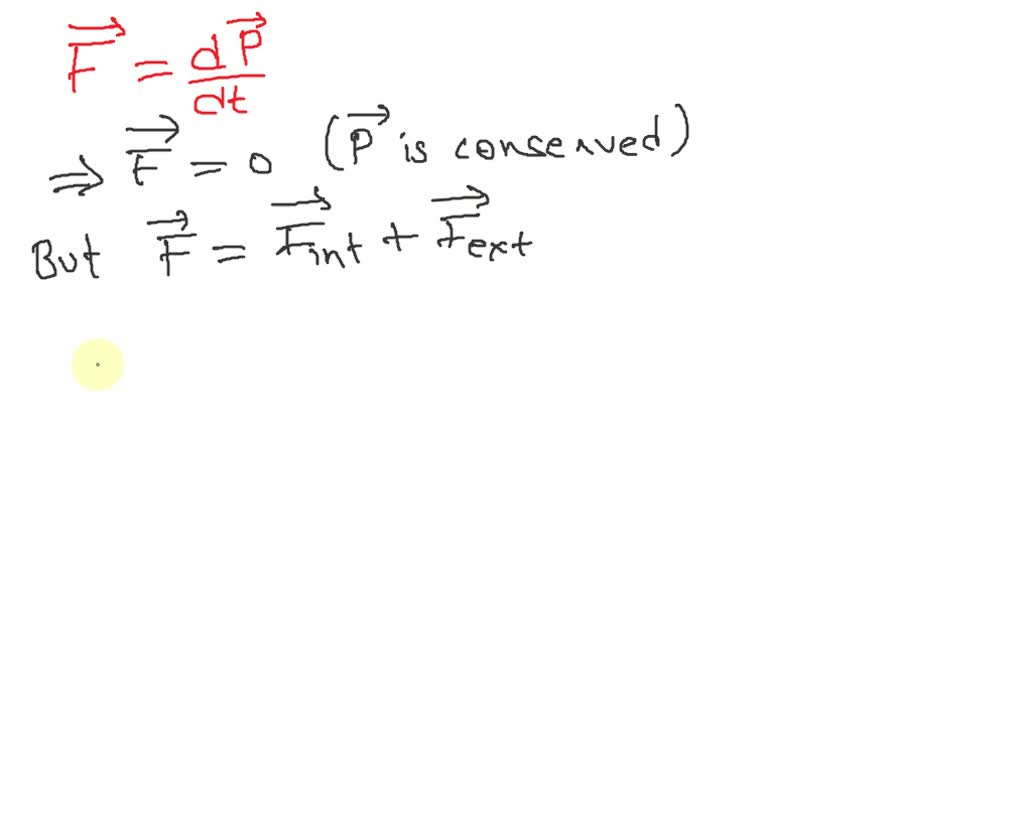 $\vec{F} = \frac{d\vec{P}}{dt}$
$\Rightarrow \vec{F} = 0$ ($\vec{P}$ is conserved)
But $\vec{F} = \vec{F}_{int} + \vec{F}_{ext}$